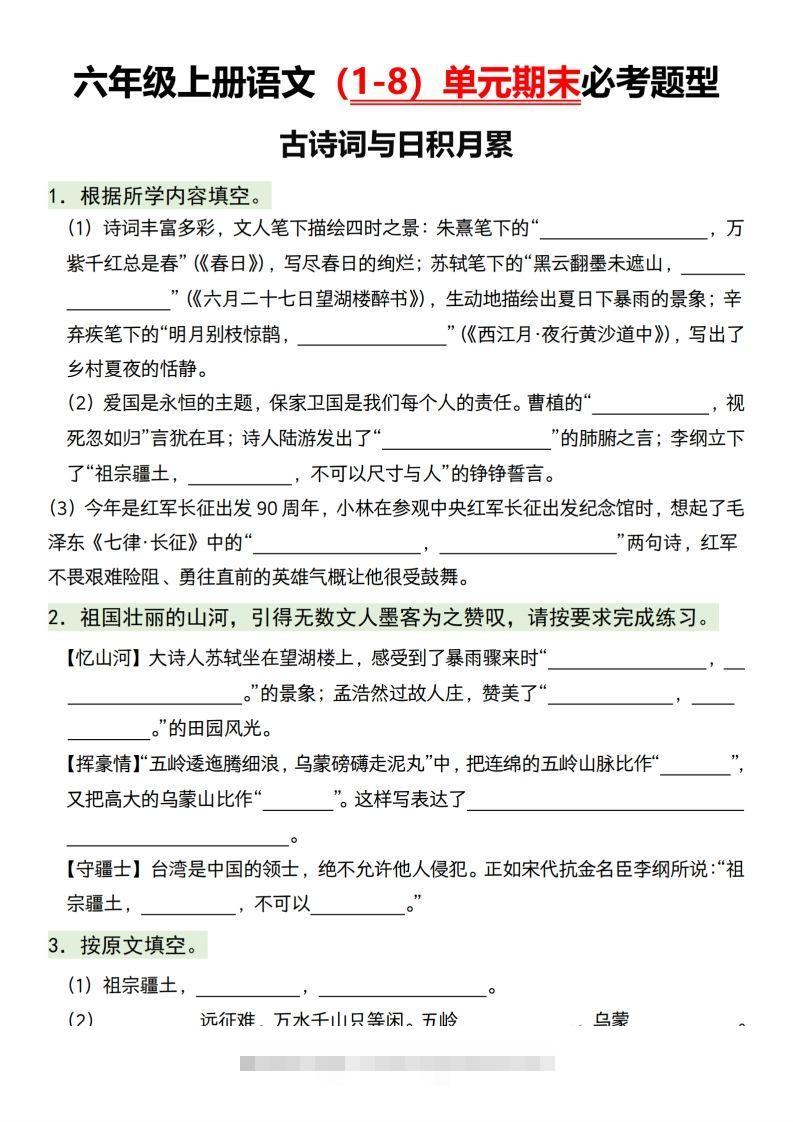 六年级上册语文（1-8）单元期末必考题型
古诗词与日积月累
1．根据所学内容填空。
（1）诗词丰富多彩，文人笔下描绘四时之景：朱熹笔下的“________________，万
紫千红总是春”（《春日》），写尽春日的绚烂；苏轼笔下的“黑云翻墨未遮山，______
__________”（《六月二十七日望湖楼醉书》），生动地描绘出夏日下暴雨的景象；辛
弃疾笔下的“明月别枝惊鹊，______________”（《西江月·夜行黄沙道中》），写出了
乡村夏夜的恬静。
（2）爱国是永恒的主题，保家卫国是我们每个人的责任。曹植的“___________，视
死忽如归”言犹在耳；诗人陆游发出了“________________”的肺腑之言；李纲立下
了“祖宗疆土，__________，不可以尺寸与人”的铮铮誓言。
（3）今年是红军长征出发 90 周年，小林在参观中央红军长征出发纪念馆时，想起了毛
泽东《七律·长征》中的“________________，________________”两句诗，红军
不畏艰难险阻、勇往直前的英雄气概让他很受鼓舞。
2．祖国壮丽的山河，引得无数文人墨客为之赞叹，请按要求完成练习。
【忆山河】大诗人苏轼坐在望湖楼上，感受到了暴雨骤来时“_______________，__
________________。”的景象；孟浩然过故人庄，赞美了“____________，____
________。”的田园风光。
【挥豪情】“五岭逶迤腾细浪，乌蒙磅礴走泥丸”中，把连绵的五岭山脉比作“_______”，
又把高大的乌蒙山比作“_______”。这样写表达了__________________________
_____________________。
【守疆士】台湾是中国的领士，绝不允许他人侵犯。正如宋代抗金名臣李纲所说：“祖
宗疆土，_________，不可以_________。”
3．按原文填空。
（1）祖宗疆土，__________，________________。
（2）__________远征难，万水千山只等闲。五岭__________，乌蒙__________。